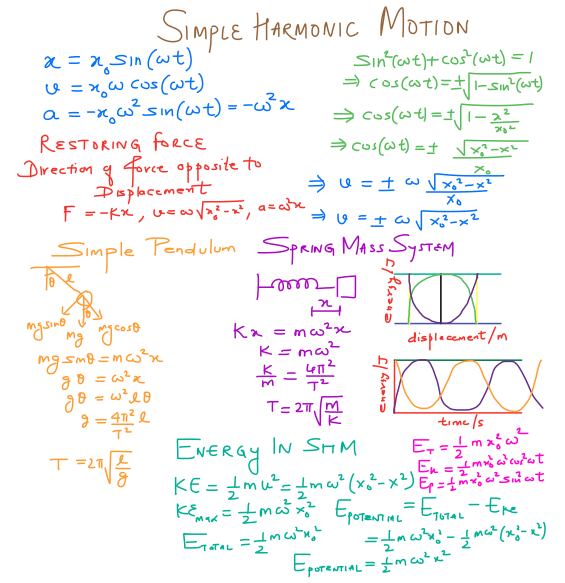 SIMPLE HARMONIC MOTION
x = x₀ sin(ωt)
v = x₀ω cos(ωt)
a = -x₀ω² sin(ωt) = -ω²x
sin²(ωt) + cos²(ωt) = 1
⇒ cos(ωt) = ±√(1-sin²(ωt))
⇒ cos(ωt) = ±√(1 - x²/x₀²)
⇒ cos(ωt) = ± √(x₀²-x²)/x₀
⇒ v = ± ω √(x₀²-x²)/x₀
⇒ v = ± ω √(x₀²-x²)
RESTORING FORCE
Direction of force opposite to
Displacement
F = -Kx, v = ω√(x₀²-x²), a = ω²x
Simple Pendulum
θ
l
θ
mgsinθ
mg
mgcosθ
mgsinθ = mω²x
gθ = ω²x
gθ = ω²lθ
g = 4π²/T² l
T = 2π√(l/g)
SPRING MASS SYSTEM
x
Kx = mω²x
K = mω²
K/m = 4π²/T²
T = 2π√(m/K)
energy/J
displacement/m
energy/J
time/s
ENERGY IN SHM
KE = 1/2 mv² = 1/2 mω²(x₀²-x²)
KE max = 1/2 mω²x₀²
E TOTAL = 1/2 mω²x₀²
E_T = 1/2 m x₀²ω²
E_k = 1/2 mx₀²ω²cos²ωt
E_p = 1/2 mx₀²ω²sin²ωt
E POTENTIAL = E TOTAL - E KE
= 1/2 mω²x₀² - 1/2 mω²(x₀²-x²)
E POTENTIAL = 1/2 mω²x²